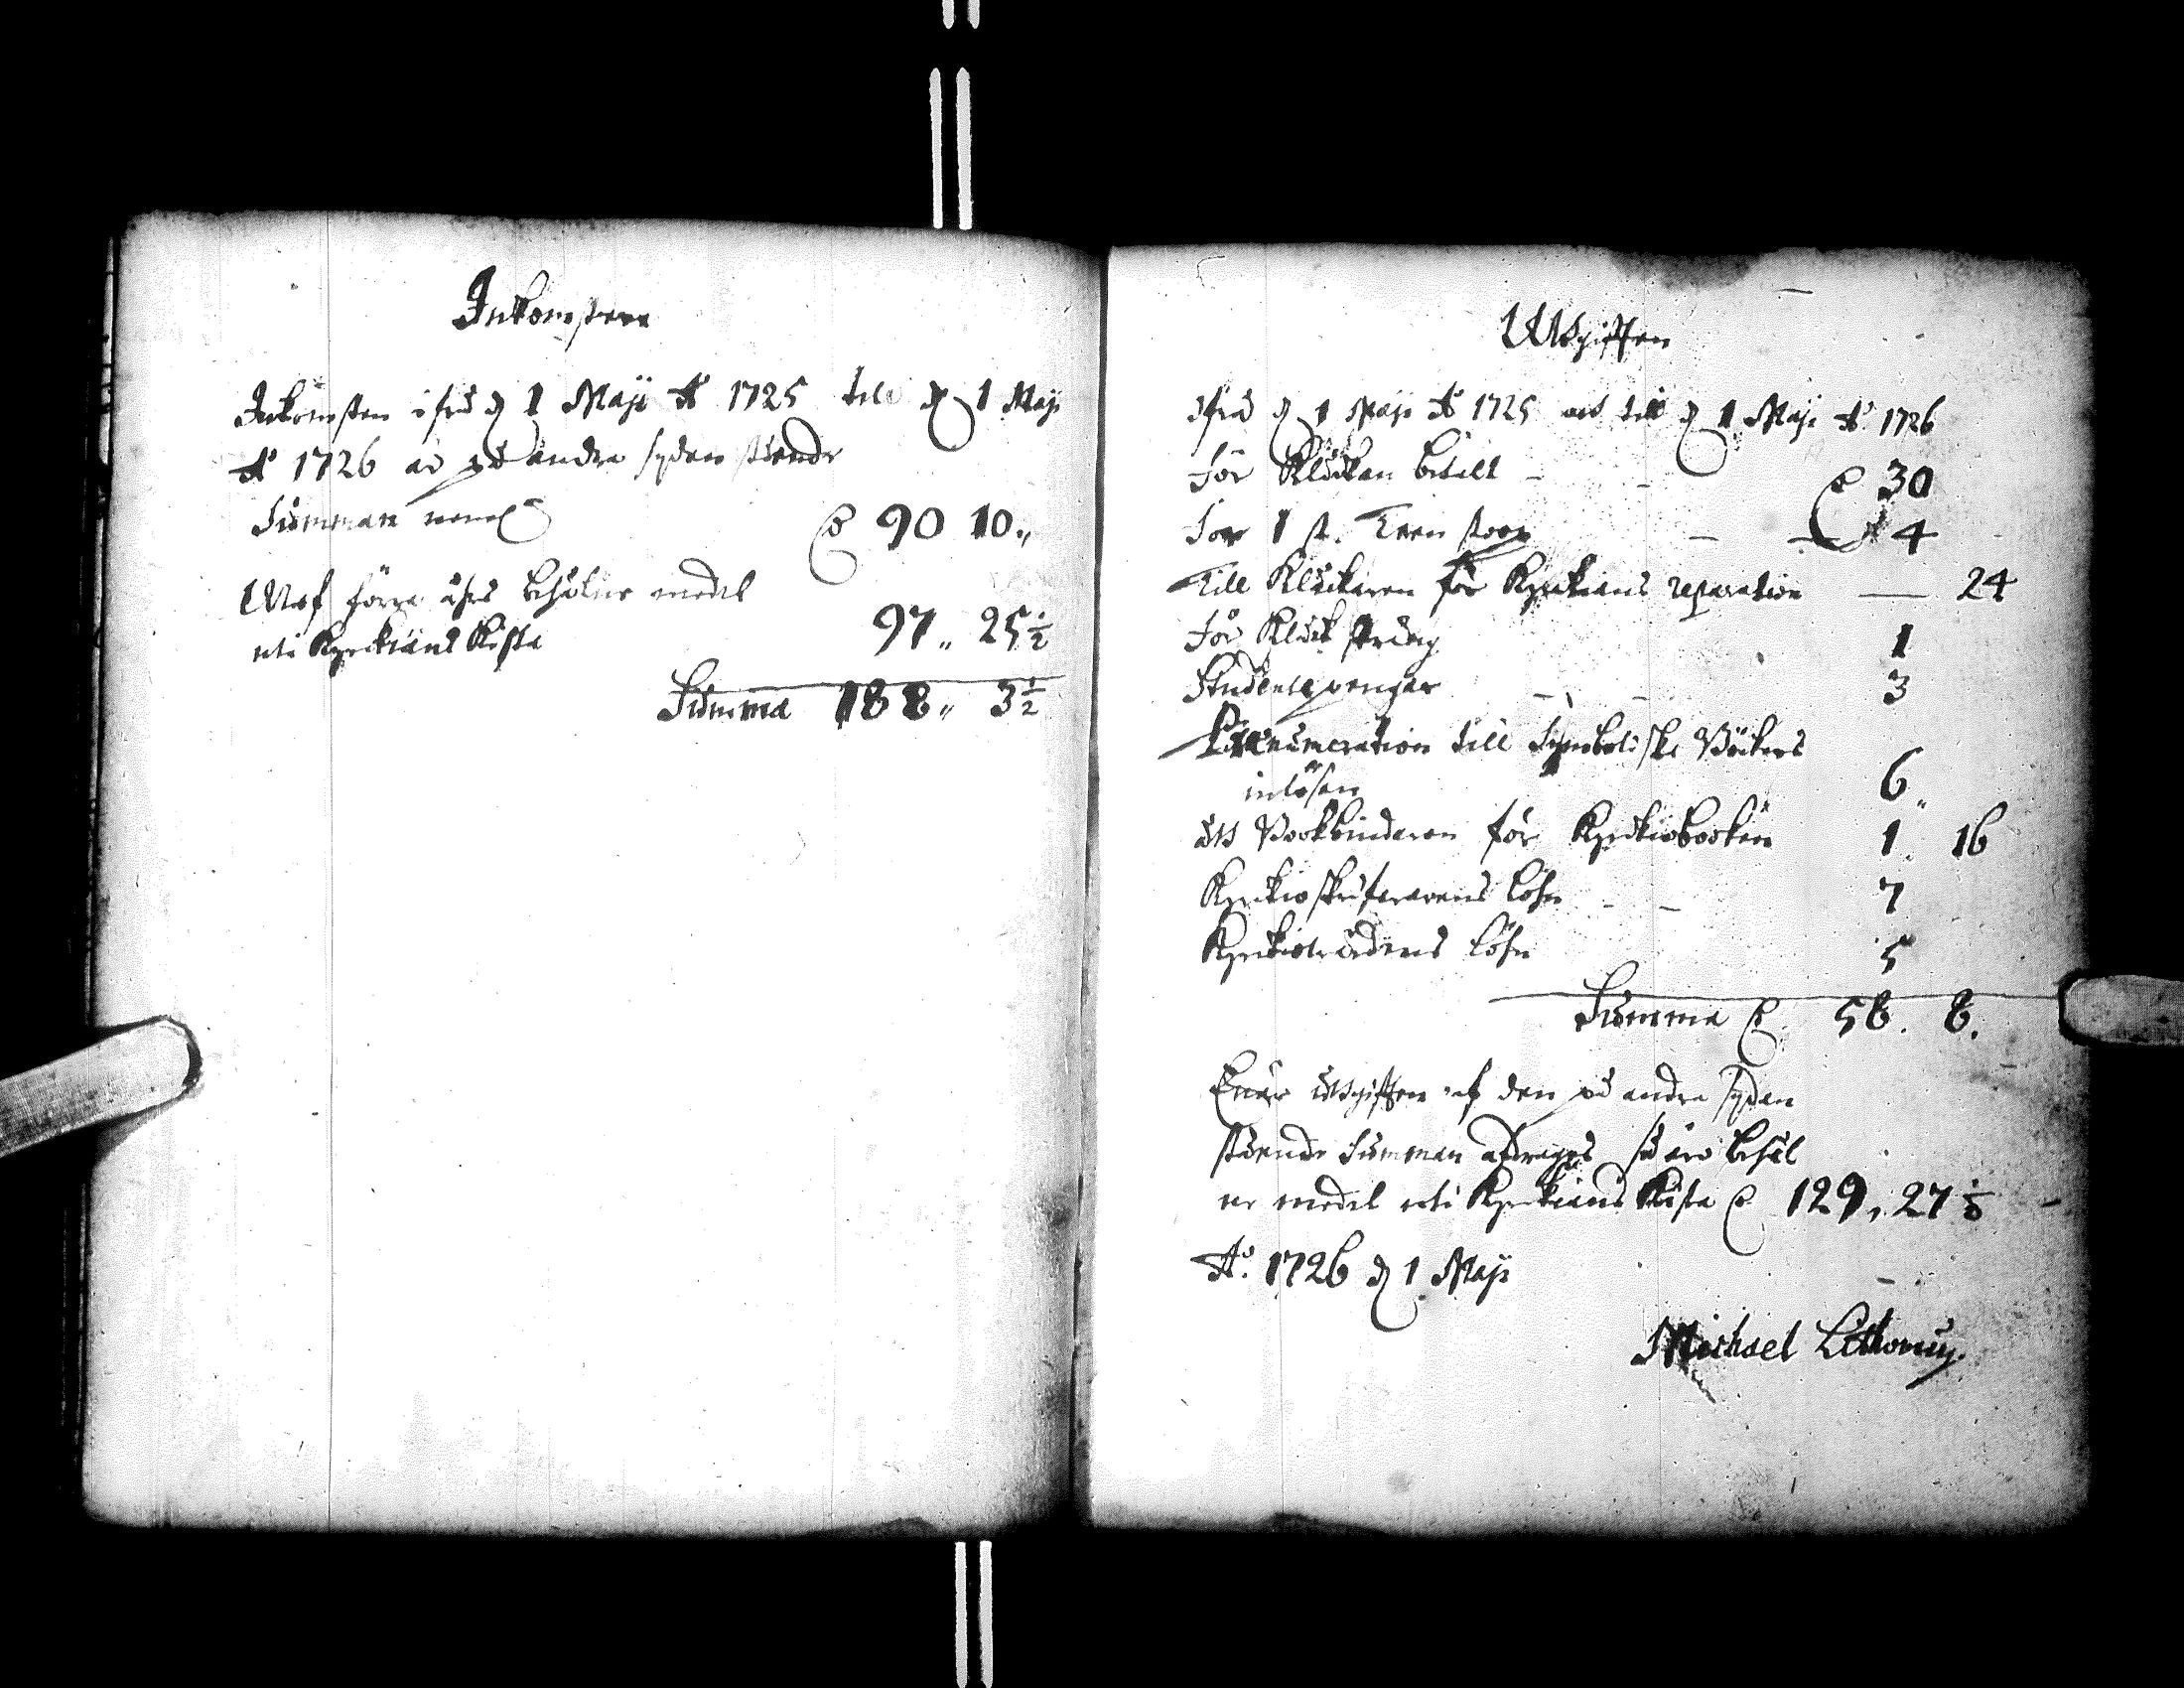 Inkomsten
Inkomsten ifrå d 1 Maji Ao 1725 till d 1 Maji
Ao 1726 är på andra sydan stående
Summan
90 10
Utaf förra åhrs behålne medel
uti Kyrkians Kista 97 25½
Summa 188 3½
Utgiften
Ifrå d 1 Maji Ao 1725 till d 1 Maji Ao 1726
För Klåckan betalt 30
För 1 st. 4
Till Klåckaren för Kyrkians reparation 24
För Klåck sträng 1
Studentepengar 3
Prænumeration till Symboliske Böckers
inlösen 6
åt Bookbindaren för Kyrkiobooken 1 16
Kyrkioskrifvarens Löhn 7
Kyrkiovärdens Löhn 5
Summa 58 8
utgiften af den på andra sydan
stående Summan afdrages så äro behål
ne medel uti Kyrkians Kista 129 27½
Ao 1726 d 1 Maji
Michael Lithovius